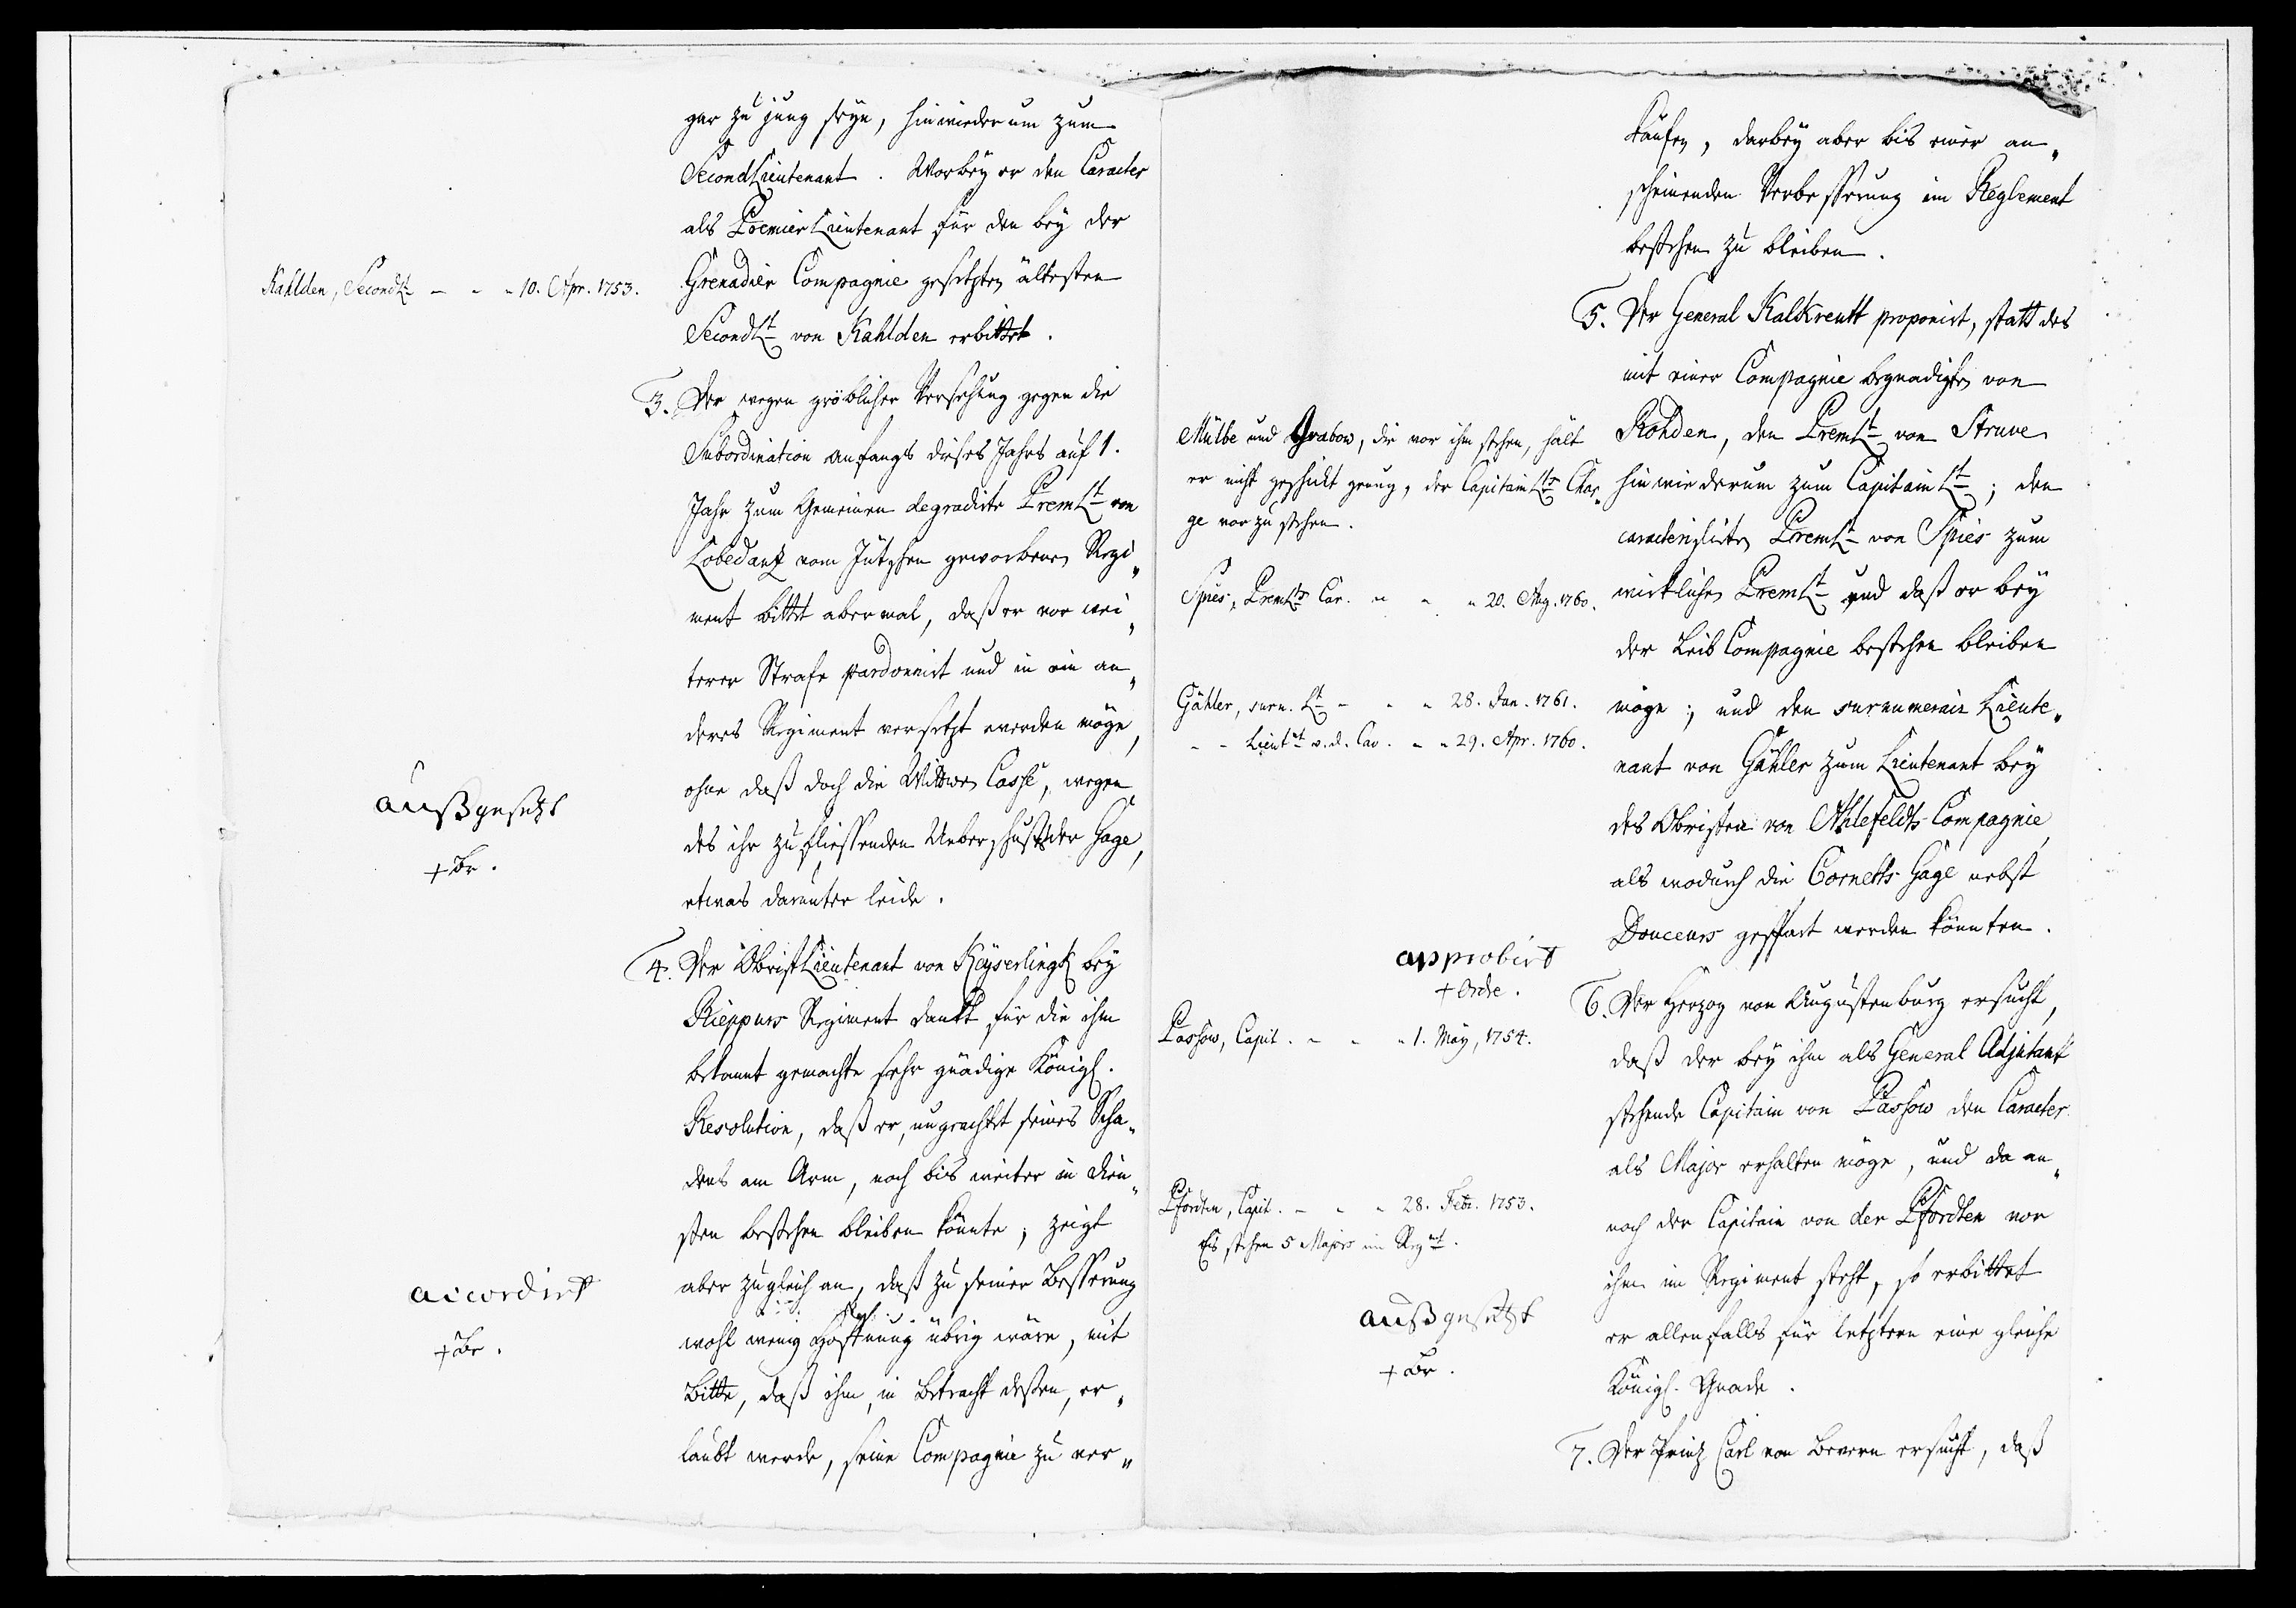 gar zu jung seyn, hinwiederum zum
SecondLieutenant. Worbey er den Caracter
als PremierLieutenant für den bey der
Kahlden, SecondLt - - - 10. Apr. 1753.
Grenadier Compagnie gesetzten ältesten
SecondLt von Kahlden erbittet.
3. Der wegen gröblicher Versehung gegen die
Subordination anfangs dieses Jahrs auf 1.
Jahr zum Gemeinen degradirte PremLt von
Lobedantz vom Jütschen geworbenen Regi„
ment bittet abermal, daß er vor wei„
terer Strafe pardonnirt und in ein an„
deres Regiment versetzt werden möge,
ohne daß doch die Wittwen Casse, wegen
außgesetzt
des ihr zufliessenden Ueberschusses der Gage,
+ Br.
etwas darunter leide.
4. Der ObristLieutenant von Keyserlingk bey
Rieppurs Regiment dankt für die ihm
bekannt gemachte sehr gnädige Königl.
Resolution, daß er, ungeachtet seines Scha„
dens am Arm, noch bis weiter in Dien„
sten bestehen bleiben könnte; zeigt
aber zugleich an, daß zu seiner Besserung
accordirt
wohl wenig Hoffnung übrig wäre, mit
+ Br.
Bitte, daß ihm, in Betracht dessen, er„
laubt werde, seine Compagnie zu ver„
kaufen, darbey aber bis einer an„
scheinenden Verbesserung im Reglement
bestehen zu bleiben.
5. Der General Kalkreutt proponirt, statt des
mit einer Compagnie begnadigten von
Mülbe und Grabow, die vor ihm stehen, hält
er nicht geschickt genug, der CapitainLts Char„
ge vorzustehen.
Rohden, den PremLt von Struve
hinwiederum zum CapitainLt; den
caracterisirten PremLt von Spies zum
Spies, PremLts Car. - - - 20. Aug. 1760.
wirklichen PremLt und daß er bey
der Leib Compagnie bestehen bleiben
Gähler, surn. Lt - - - 28. Jan. 1761.
möge; und den surnumerair Lieute„
- - Lieutnt v. d. Cav. - - 29. Apr. 1760.
nant von Gähler zum Lieutenant bey
des Obristen von Ahlefeldts Compagnie,
als wodurch die Cornetts Gage nebst
Douceurs gespart werden könnten.
approbirt
+ Ordre.
6. Der Herzog von Augustenburg ersucht,
Passow, Capit. - - - 1. May, 1754.
daß der bey ihm als General Adjutant
stehende Capitain von Passow den Caracter
als Major erhalten möge, und da an„
Pfordten, Capit. - - - 28. Febr. 1753.
Es stehen 5 Majors im Regmt.
noch der Capitain von der Pfordten vor
ihm im Regiment steht, so erbittet
außgesetzt
er allenfalls für letztern eine gleiche
+ Br.
Königl. Gnade.
7. Der Prinz Carl von Bevern ersucht, daß